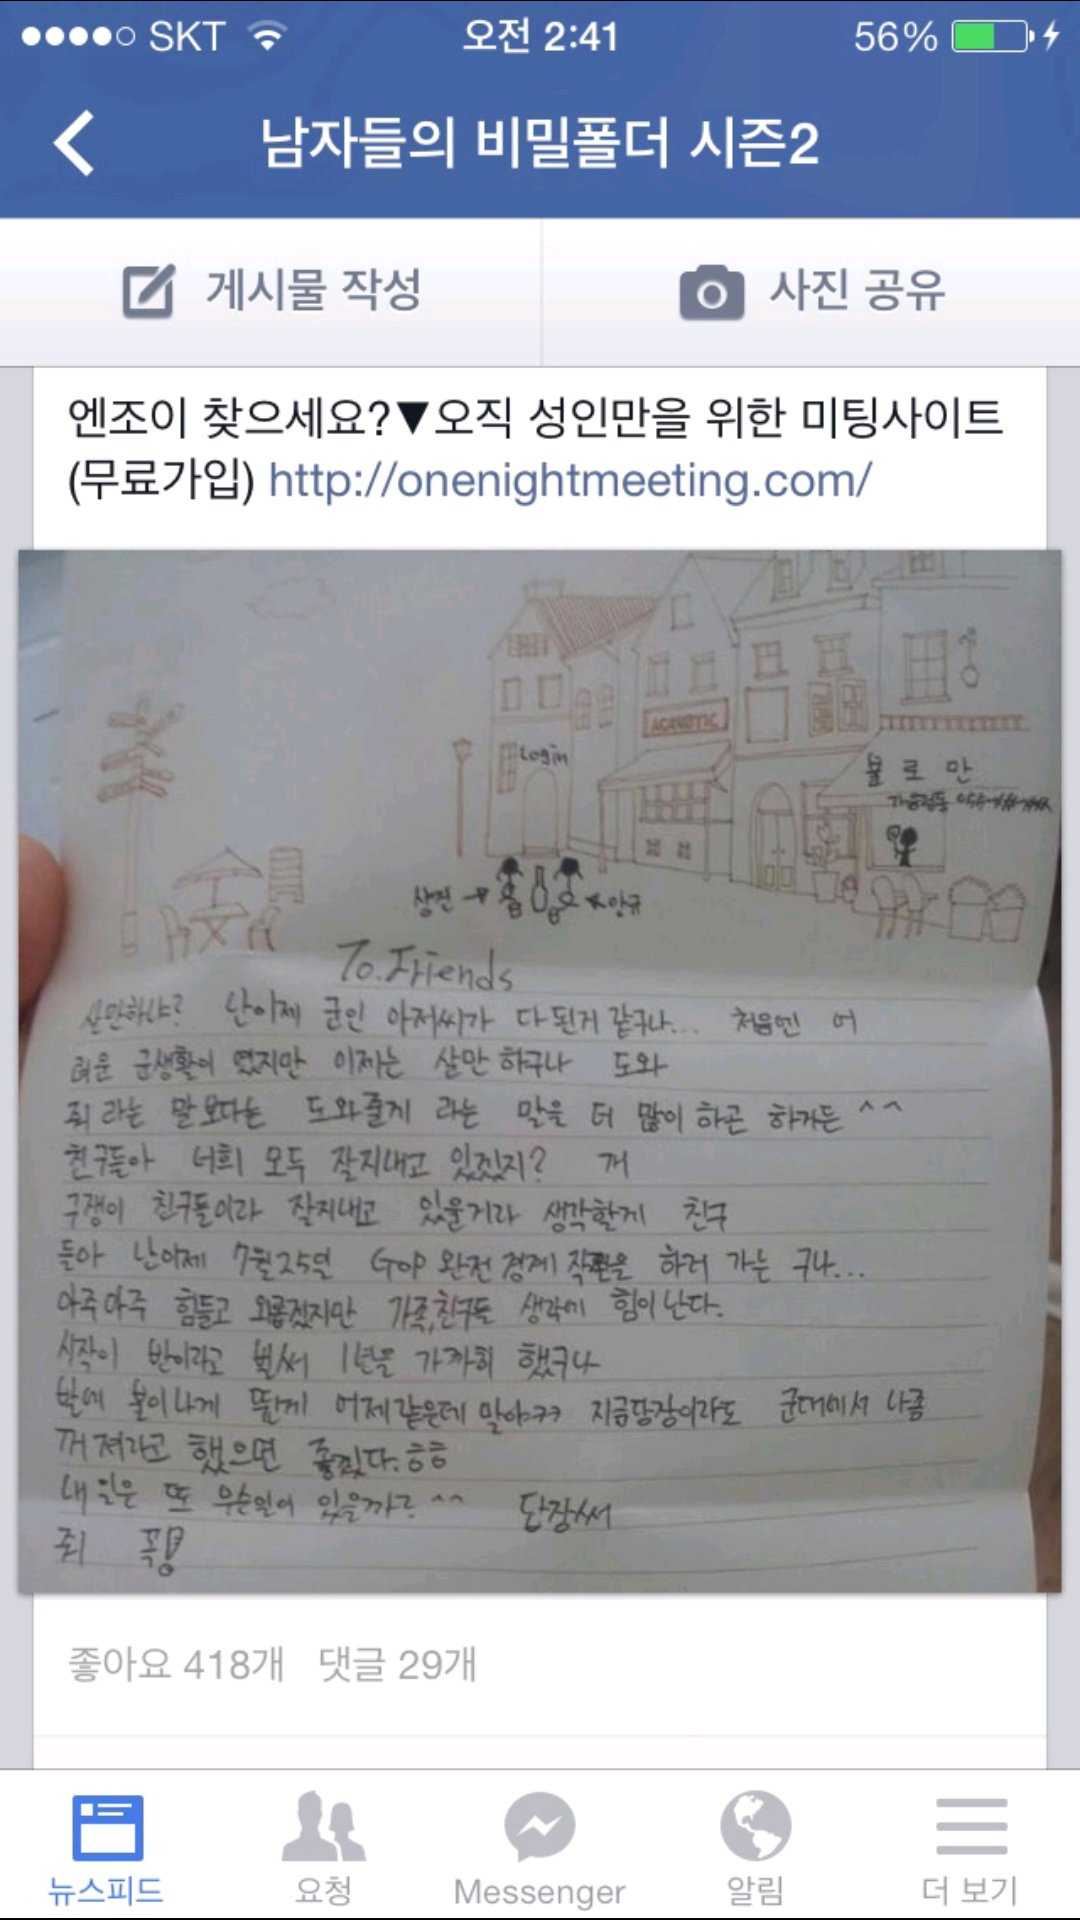 SKT
오전 2:41
56%
남자들의 비밀폴더 시즌2
게시물 작성
사진 공유
엔조이 찾으세요?▼오직 성인만을 위한 미팅사이트
(무료가입) http://onenightmeeting.com/
Login
물 로 만
상진
To. Friends
살만하냐? 난이제 군인 아저씨가 다된거 같구나... 처음엔 어
려운 군생활이 였지만 이제는 살만 하구나 도와
줘 라는 말보다는 도와줄게 라는 말을 더 많이 하곤 하거든 ^^
친구들아 너희 모두 잘지내고 있겠지? 꺼
구쟁이 친구들이라 잘지내고 있을거라 생각할게 친구
들아 난이제 7월25일 GOP 완전 경계 작전을 하러 가는 구나...
아주아주 힘들고 외롭겠지만 가족,친구들 생각에 힘이난다.
시작이 반이라고 벌써 1년을 가까히 했구나
발에 불이나게 뛴게 어제같은데 말야ㅋㅋ 지금당장이라도 군대에서 나좀
꺼져라고 했으면 좋겠다.ㅎㅎ
내일은 또 무슨일이 있을까? ^^ 답장써
줘 꼭!
좋아요 418개 댓글 29개
뉴스피드
요청
Messenger
알림
더 보기